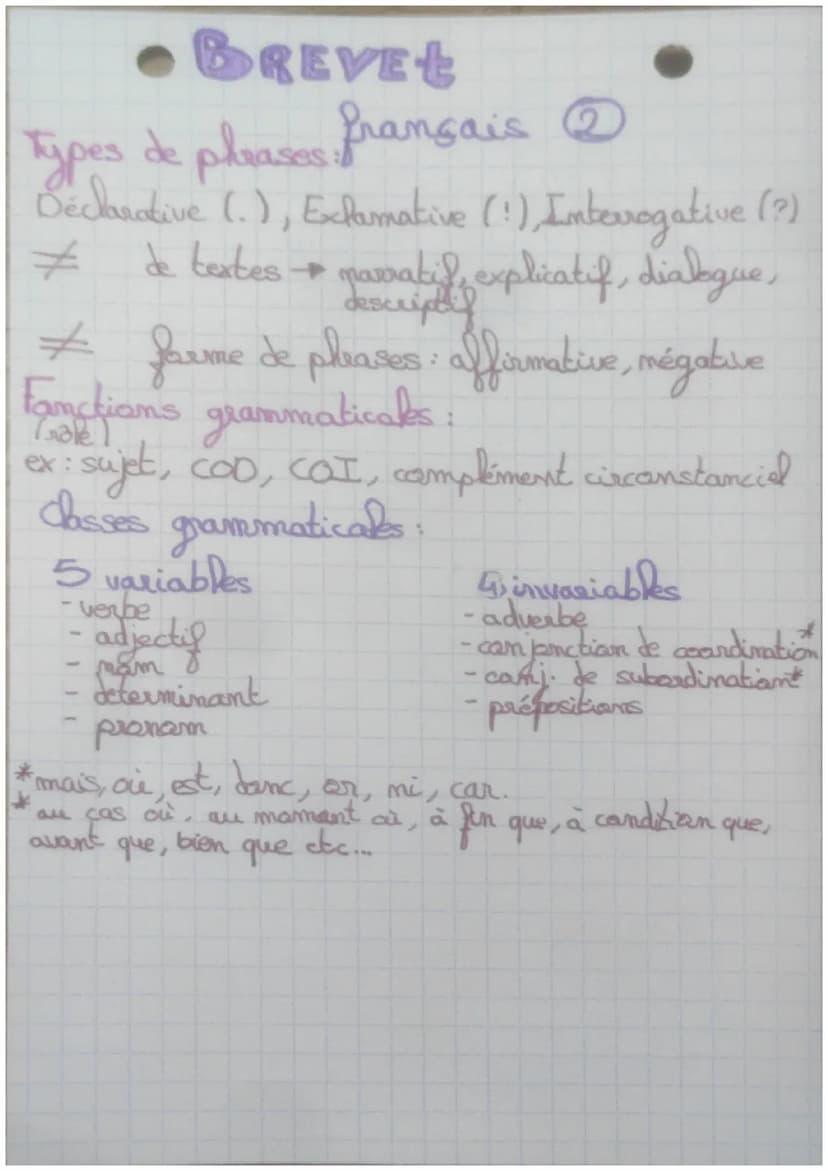 BREVET
français ②
Types de phrases :
Déclarative (.), Exclamative (!), Interrogative (?)
≠ de textes → narratif, explicatif, dialogue,
descriptif
≠ forme de phrases : affirmative, négative
Fonctions grammaticales :
(rôle)
ex : sujet, COD, COI, complément circonstanciel
Classes grammaticales :
5 variables
- verbe
- adjectif
- nom
- déterminant
- pronom
4 invariables
- adverbe
- conjonction de coordination*
- conj. de subordination*
- prépositions
*mais, où, est, donc, or, ni, car.
*au cas où, au moment où, à fin que, à condition que,
avant que, bien que etc...